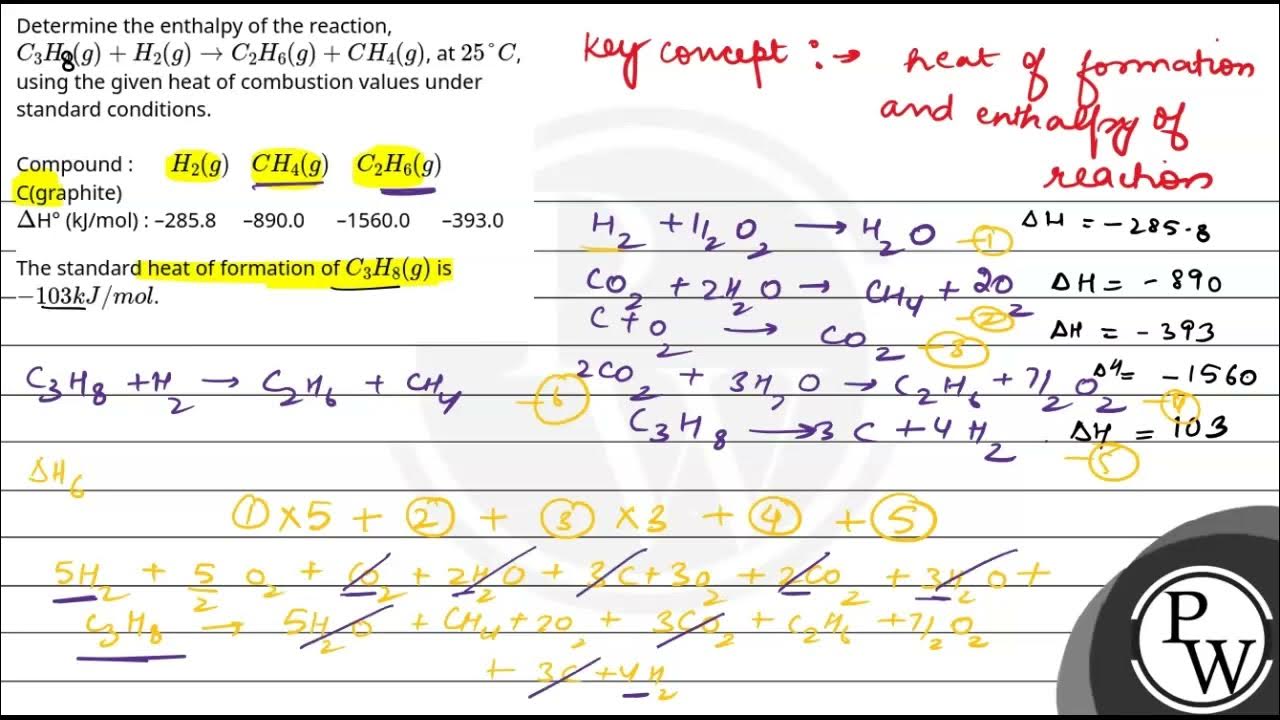 Determine the enthalpy of the reaction,
C₃H₈(g) + H₂(g) → C₂H₆(g) + CH₄(g), at 25°C,
using the given heat of combustion values under
standard conditions.
Compound : H₂(g) CH₄(g) C₂H₆(g)
C(graphite)
ΔH° (kJ/mol) : –285.8 –890.0 –1560.0 –393.0
The standard heat of formation of C₃H₈(g) is
−103kJ/mol.
Key concept :→ heat of formation
and enthalpy of
reaction
H₂ + 1/2 O₂ → H₂O –① ΔH = −285.8
CO₂ + 2H₂O → CH₄ + 2O₂ –② ΔH = −890
C + O₂ → CO₂ –③ ΔH = −393
2CO₂ + 3H₂O → C₂H₆ + 7/2 O₂ –④ ΔH = −1560
C₃H₈ → 3C + 4H₂ . ΔH = 103 –⑤
C₃H₈ + H₂ → C₂H₆ + CH₄ –⑥
ΔH₆
① × 5 + ② + ③ × 3 + ④ + ⑤
5H₂ + 5/2 O₂ + CO₂ + 2H₂O + 3C + 3O₂ + 2CO₂ + 3H₂O +
C₃H₈ → 5H₂O + CH₄ + 2O₂ + 3CO₂ + C₂H₆ + 7/2 O₂
+ 3C + 4H₂
P
W